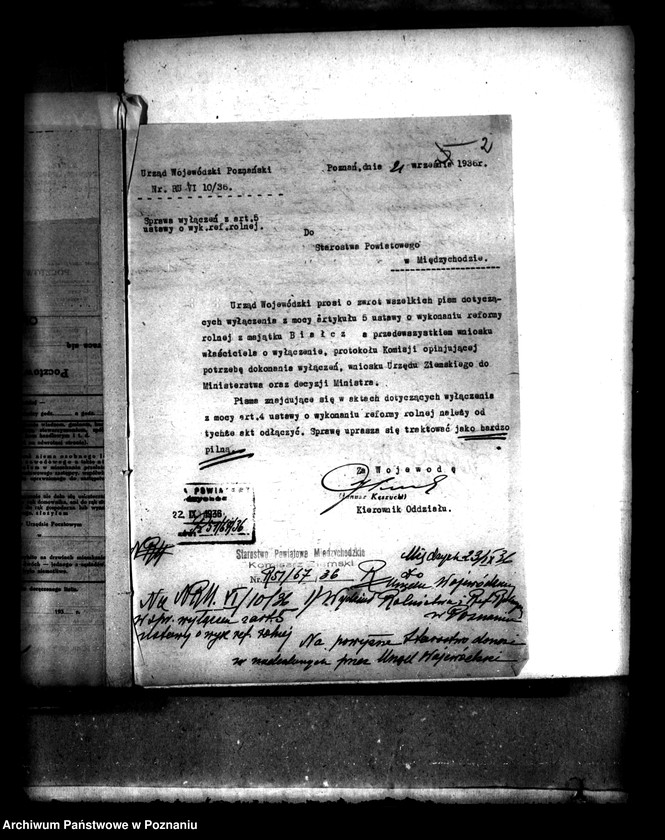 5 2
Urząd Wojewódzki Poznański
Nr. RU VI 10/36.
Poznań, dnia 21 września 1936r.
Sprawa wyłączeń z art.5
ustawy o wyk.ref.rolnej.
Do
Starostwa Powiatowego
w Międzychodzie.
Urząd Wojewódzki prosi o zwrot wszelkich pism dotyczą-
cych wyłączenia z mocy artykułu 5 ustawy o wykonaniu reformy
rolnej z majątku B i a ł c z a przedewszystkiem wniosku
właściciela o wyłączenie, protokołu Komisji opinjującej
potrzebę dokonania wyłączeń, wniosku Urzędu Ziemskiego do
Ministerstwa oraz decyzji Ministra.
Pisma znajdujące się w aktach dotyczących wyłączenia
z mocy art.4 ustawy o wykonaniu reformy rolnej należy od
tychże akt odłączyć. Sprawę uprasza się traktować jako bardzo
pilną.
Za Wojewodę
Kierownik Oddziału.
POWIAT
22 IX 1936
Starostwo Powiatowe Międzychodzkie
Komisarz Ziemski
Nr. R/51/67 36
Międzych 23/IX 36
Do
Urzędu Wojewódzkiego
Wydział Rolnictwa i Ref Roln
w Poznaniu
Na NRU. VI/10/36
w spr. wyłącz z art 5
ustawy o wyk ref. rolnej
Na powyższe Starostwo donosi
w nadesłanych przez Urząd Wojewódzki
Archiwum Państwowe w Poznaniu